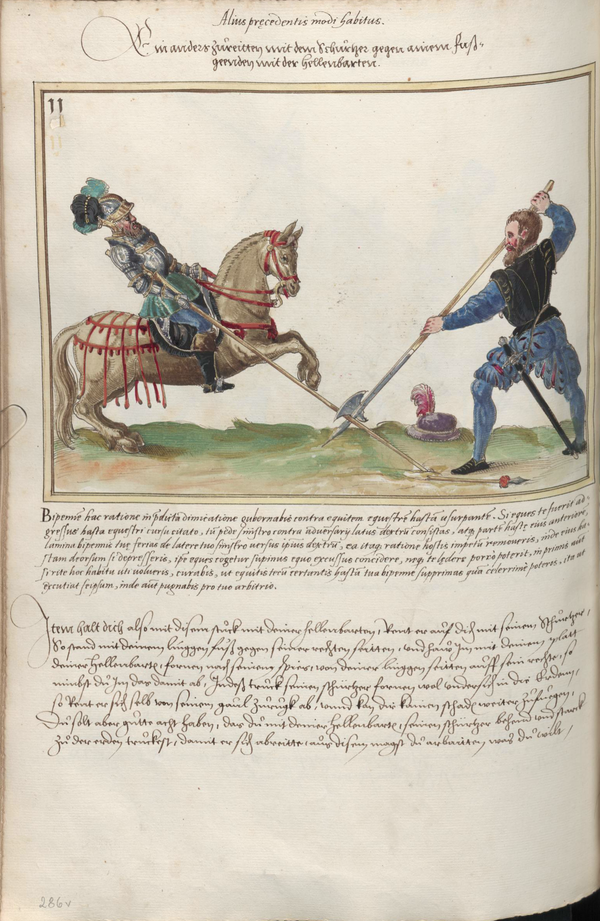 Alius præcedentis modi habitus.
Ein anders zůreitten mit dem Schürtzer gegen ainem fůß-
geenden mit der hellenbarten.
11
Bipenne hac ratione in prædicta dimicatione gubernabis contra equitem equestrẽ hastã usurpantẽ. Si eques te fuerit ad-
gressus hasta equestri cursu citato, tũ pede sinistro contra adversarij latus dextrũ consistas, atq; partẽ hastę eius anteriorẽ,
lamina bipennis tuę ferias de latere tuo sinistro versus ipsius dextrũ, ea itaq; ratione hostis impetũ removeris, inde eius ha-
stam deorsum si depresseris, ipse eques cogetur supinus equo excussus concidere, neq; te lędere porro poterit, in primis autẽ
si rite hoc habitu uti volueris, curabis, ut equitis tecũ certantis hastã tua bipenne supprimas quã celerrimè poteris, ita ut
excutiat seipsum, inde autẽ pugnabis pro tuo arbitrio.
Item halt dich also mit disem stuck mit deiner hellenbarten, Rent er auf dich mit seinem Schürtzer,
So stand mit deinem linggen fůß gegen seiner rechten seitten, und haw im mit deinem plat
deiner hellenbarte, fornen nach seinem spies, von deiner linggen seitten auff sein rechte, so
nimbst du Im das damit ab, Indeß truck seinen schürtzer fornen wol undersich in die Erden,
so Rent er sich selb von seinem gaul zuruck ab, unnd kan dir kainen schad weiter zůfügen,
Du solt aber gůtte acht haben, das du mit deiner hellenbarte, seinen schürtzer behend unnd starck
zů der erden truckest, damit er sich abreitte, aus disem magst du arbaitten was du wilt,
286v